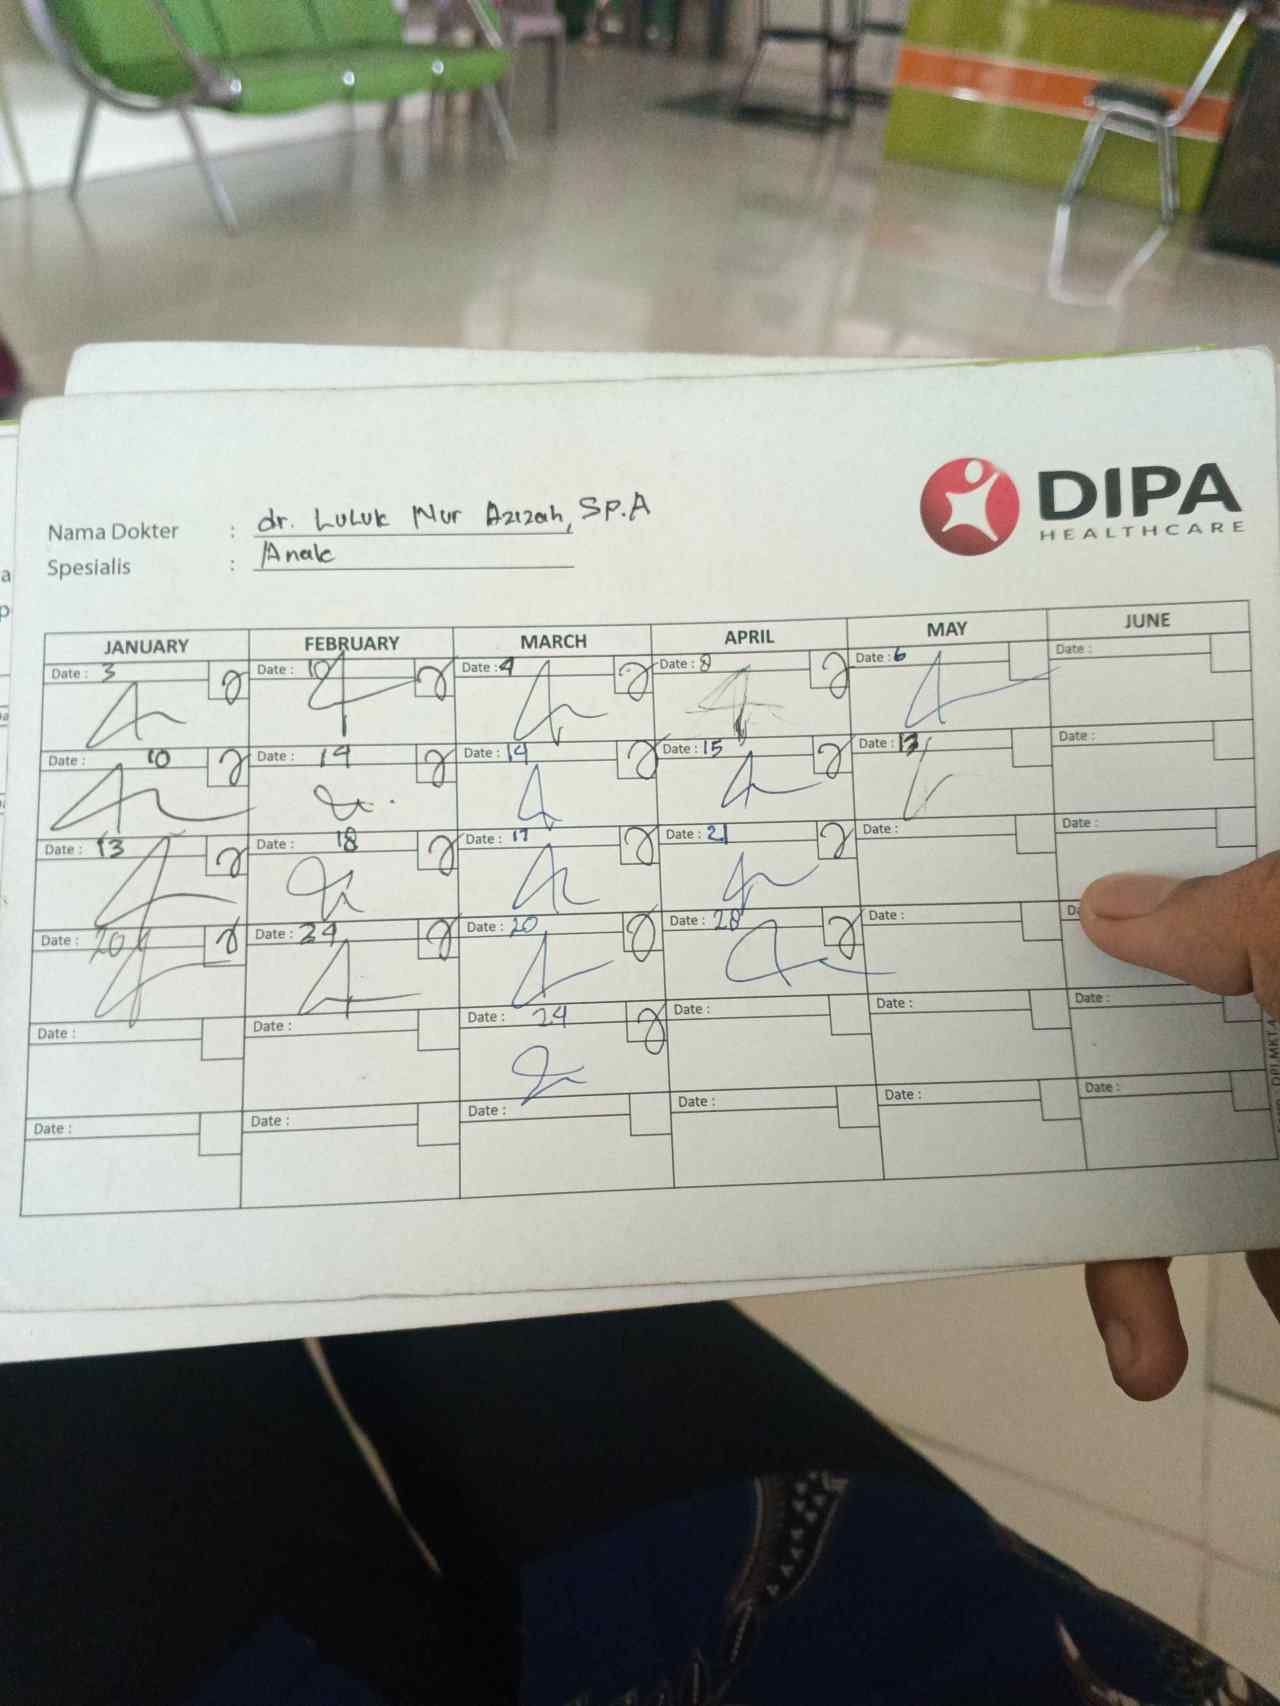 DIPA
HEALTHCARE
Nama Dokter : dr. Luluk Nur Azizah, Sp.A
Spesialis : Anak
JANUARY FEBRUARY MARCH APRIL MAY JUNE
Date : 3 Date : 10 Date : 4 Date : 8 Date : 6 Date :
Date : 10 Date : 14 Date : 14 Date : 15 Date : 13 Date :
Date : 13 Date : 18 Date : 17 Date : 21 Date : Date :
Date : 20 Date : 24 Date : 20 Date : 28 Date : Da
Date : Date : Date : 24 Date : Date : Date :
Date : Date : Date : Date : Date : Date :